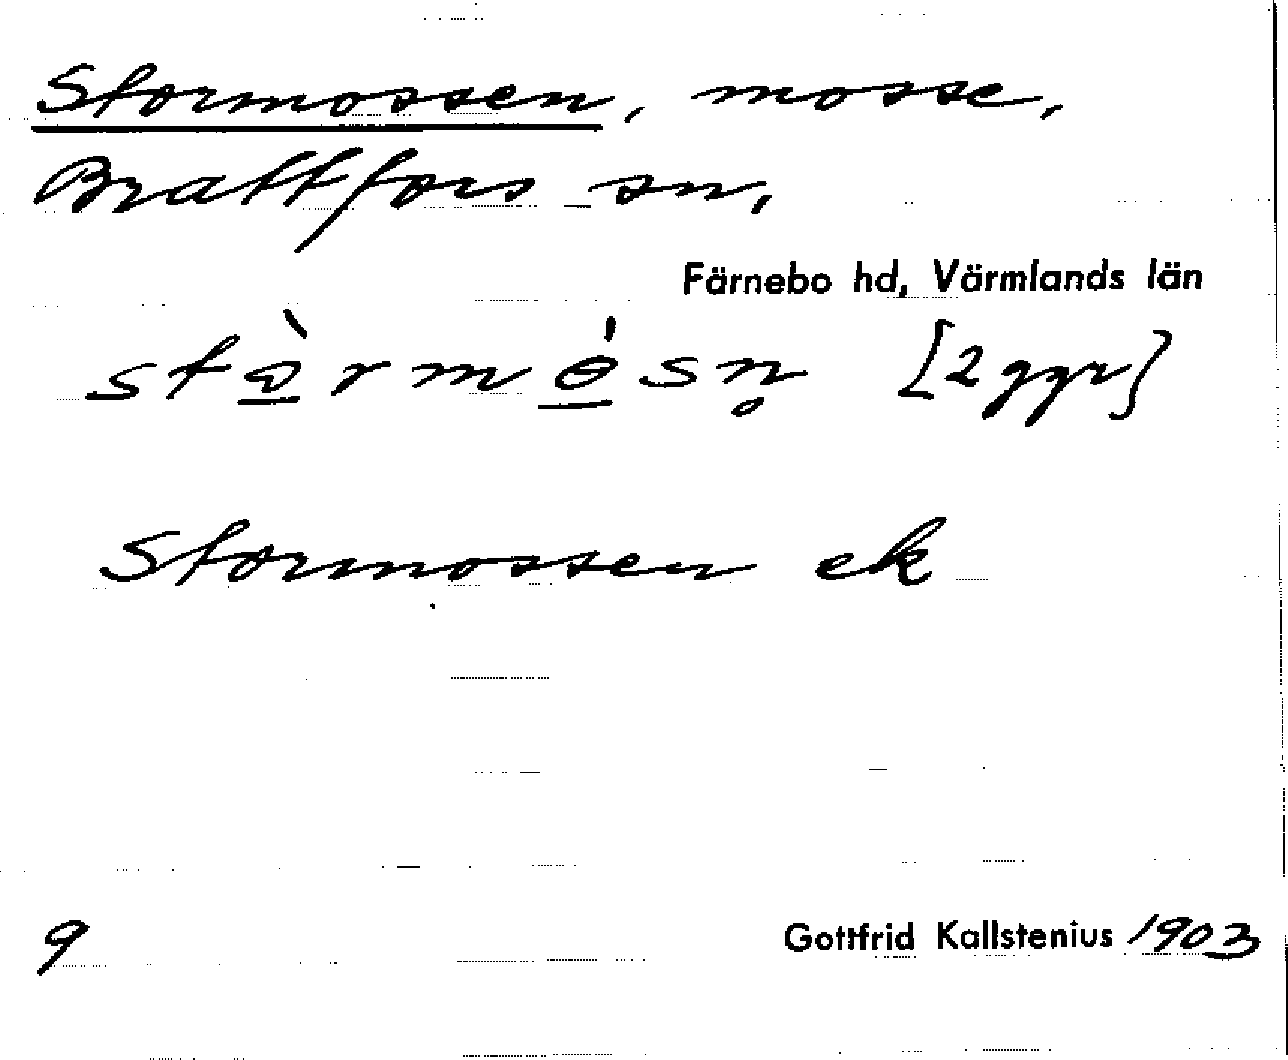 Stormossen, mosse,
Brattfors sn,
Färnebo hd, Värmlands län
stɔ̲̀rmɵ̲́sn̥ [2 ggr]
Stormossen ek
9
Gottfrid Kallstenius 1903